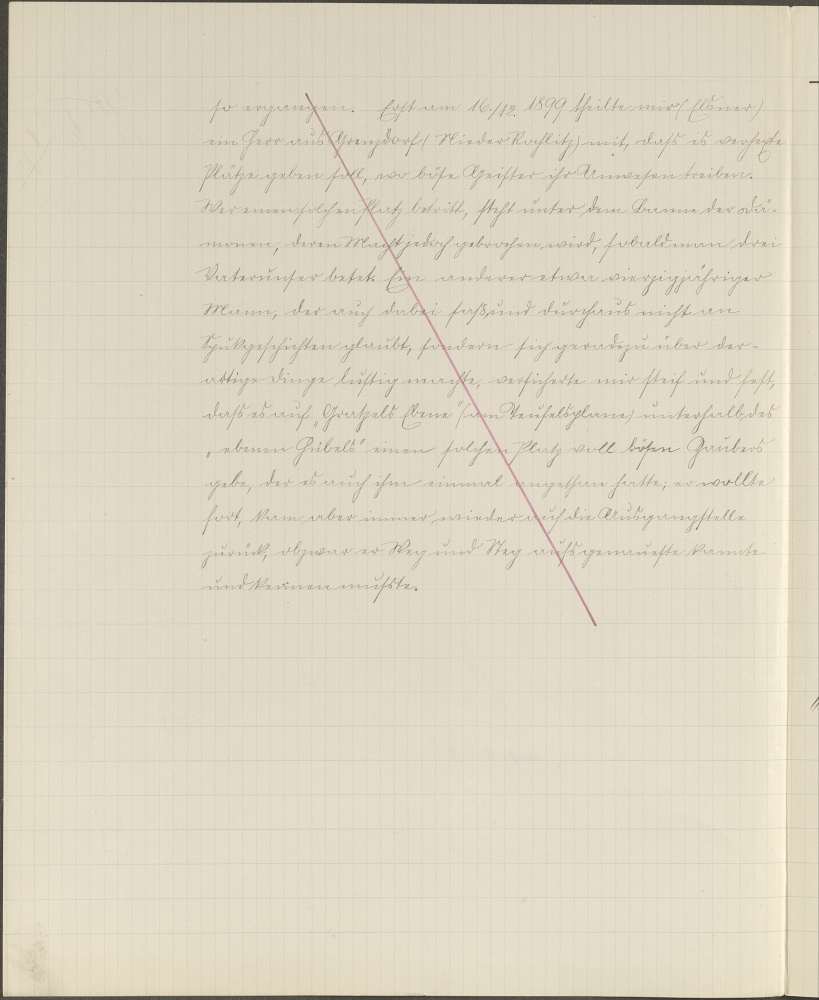 so ergangen. Erst am 16./12. 1899 theilte mir (Elsner)
ein Herr aus Grenzdorf (Nieder Rochlitz) mit, dass es verhexte
Plätze geben soll, wo böse Geister ihr Unwesen treiben.
Wer einen solchen Platz betritt, steht unter dem Banne der Dä-
monen, deren Macht jedoch gebrochen wird, sobald man drei
Vaterunser betet. Ein anderer etwa vierzigjähriger
Mann, der auch dabei saß, und durchaus nicht an
Spukgeschichten glaubt, sondern sich geradezu über der-
artige Dinge lustig machte, versicherte mir steif und fest,
dass es auf „Gratzels Ebene" (am Teufelsplane) unterhalb des
„ebenen Hübels" einen solchen Platz voll bösen Zaubers
gebe, der es auch ihm einmal angethan hatte; er wollte
fort, kam aber immer wieder auf die Ausgangstelle
zurück, obzwar er Weg und Steg aufs genaueste kannte
und kennen musste.